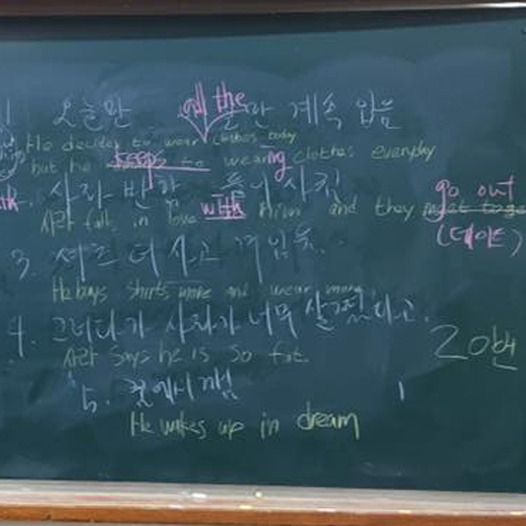 1 오늘만 all the 계속 입음
He decide to wear clothes today
but he keeps to wearing clothes everyday
사라 반함 둘이 사귐 go out
사라 fall in love with him and they
(데이트)
3. 셔츠 더 사고 입음.
He buys shirts more and wear more
4. 그러다가 사라가 너무 살쪘다고. 20번
사라 says he is so fat.
5. 꿈에서 깸
He wakes up in dream